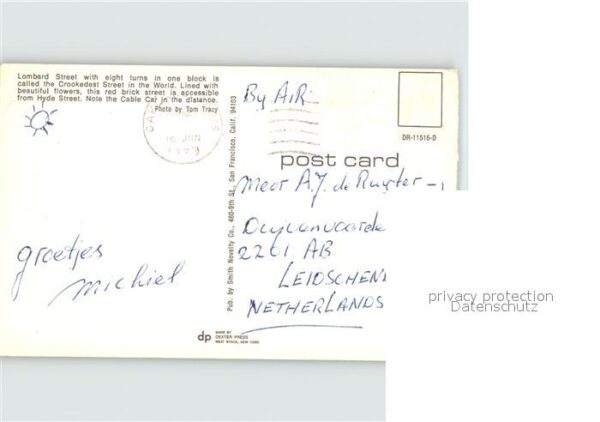 Lombard Street with eight turns in one block is
called the Crookedest Street in the World. Lined with
beautiful flowers, this red brick street is accessible
from Hyde Street. Note the Cable Car in the distance.
Photo by Tom Tracy
16 JUN
groetjes
michiel
Pub. by Smith Novelty Co., 460-9th St., San Francisco, Calif. 94103
dp
MADE BY
DEXTER PRESS
WEST NYACK, NEW YORK
By AiR
DR-11516-D
post card
A.J. de Ruyter -
2261 AB
LEIDSCHEN
NETHERLANDS
privacy protection
Datenschutz